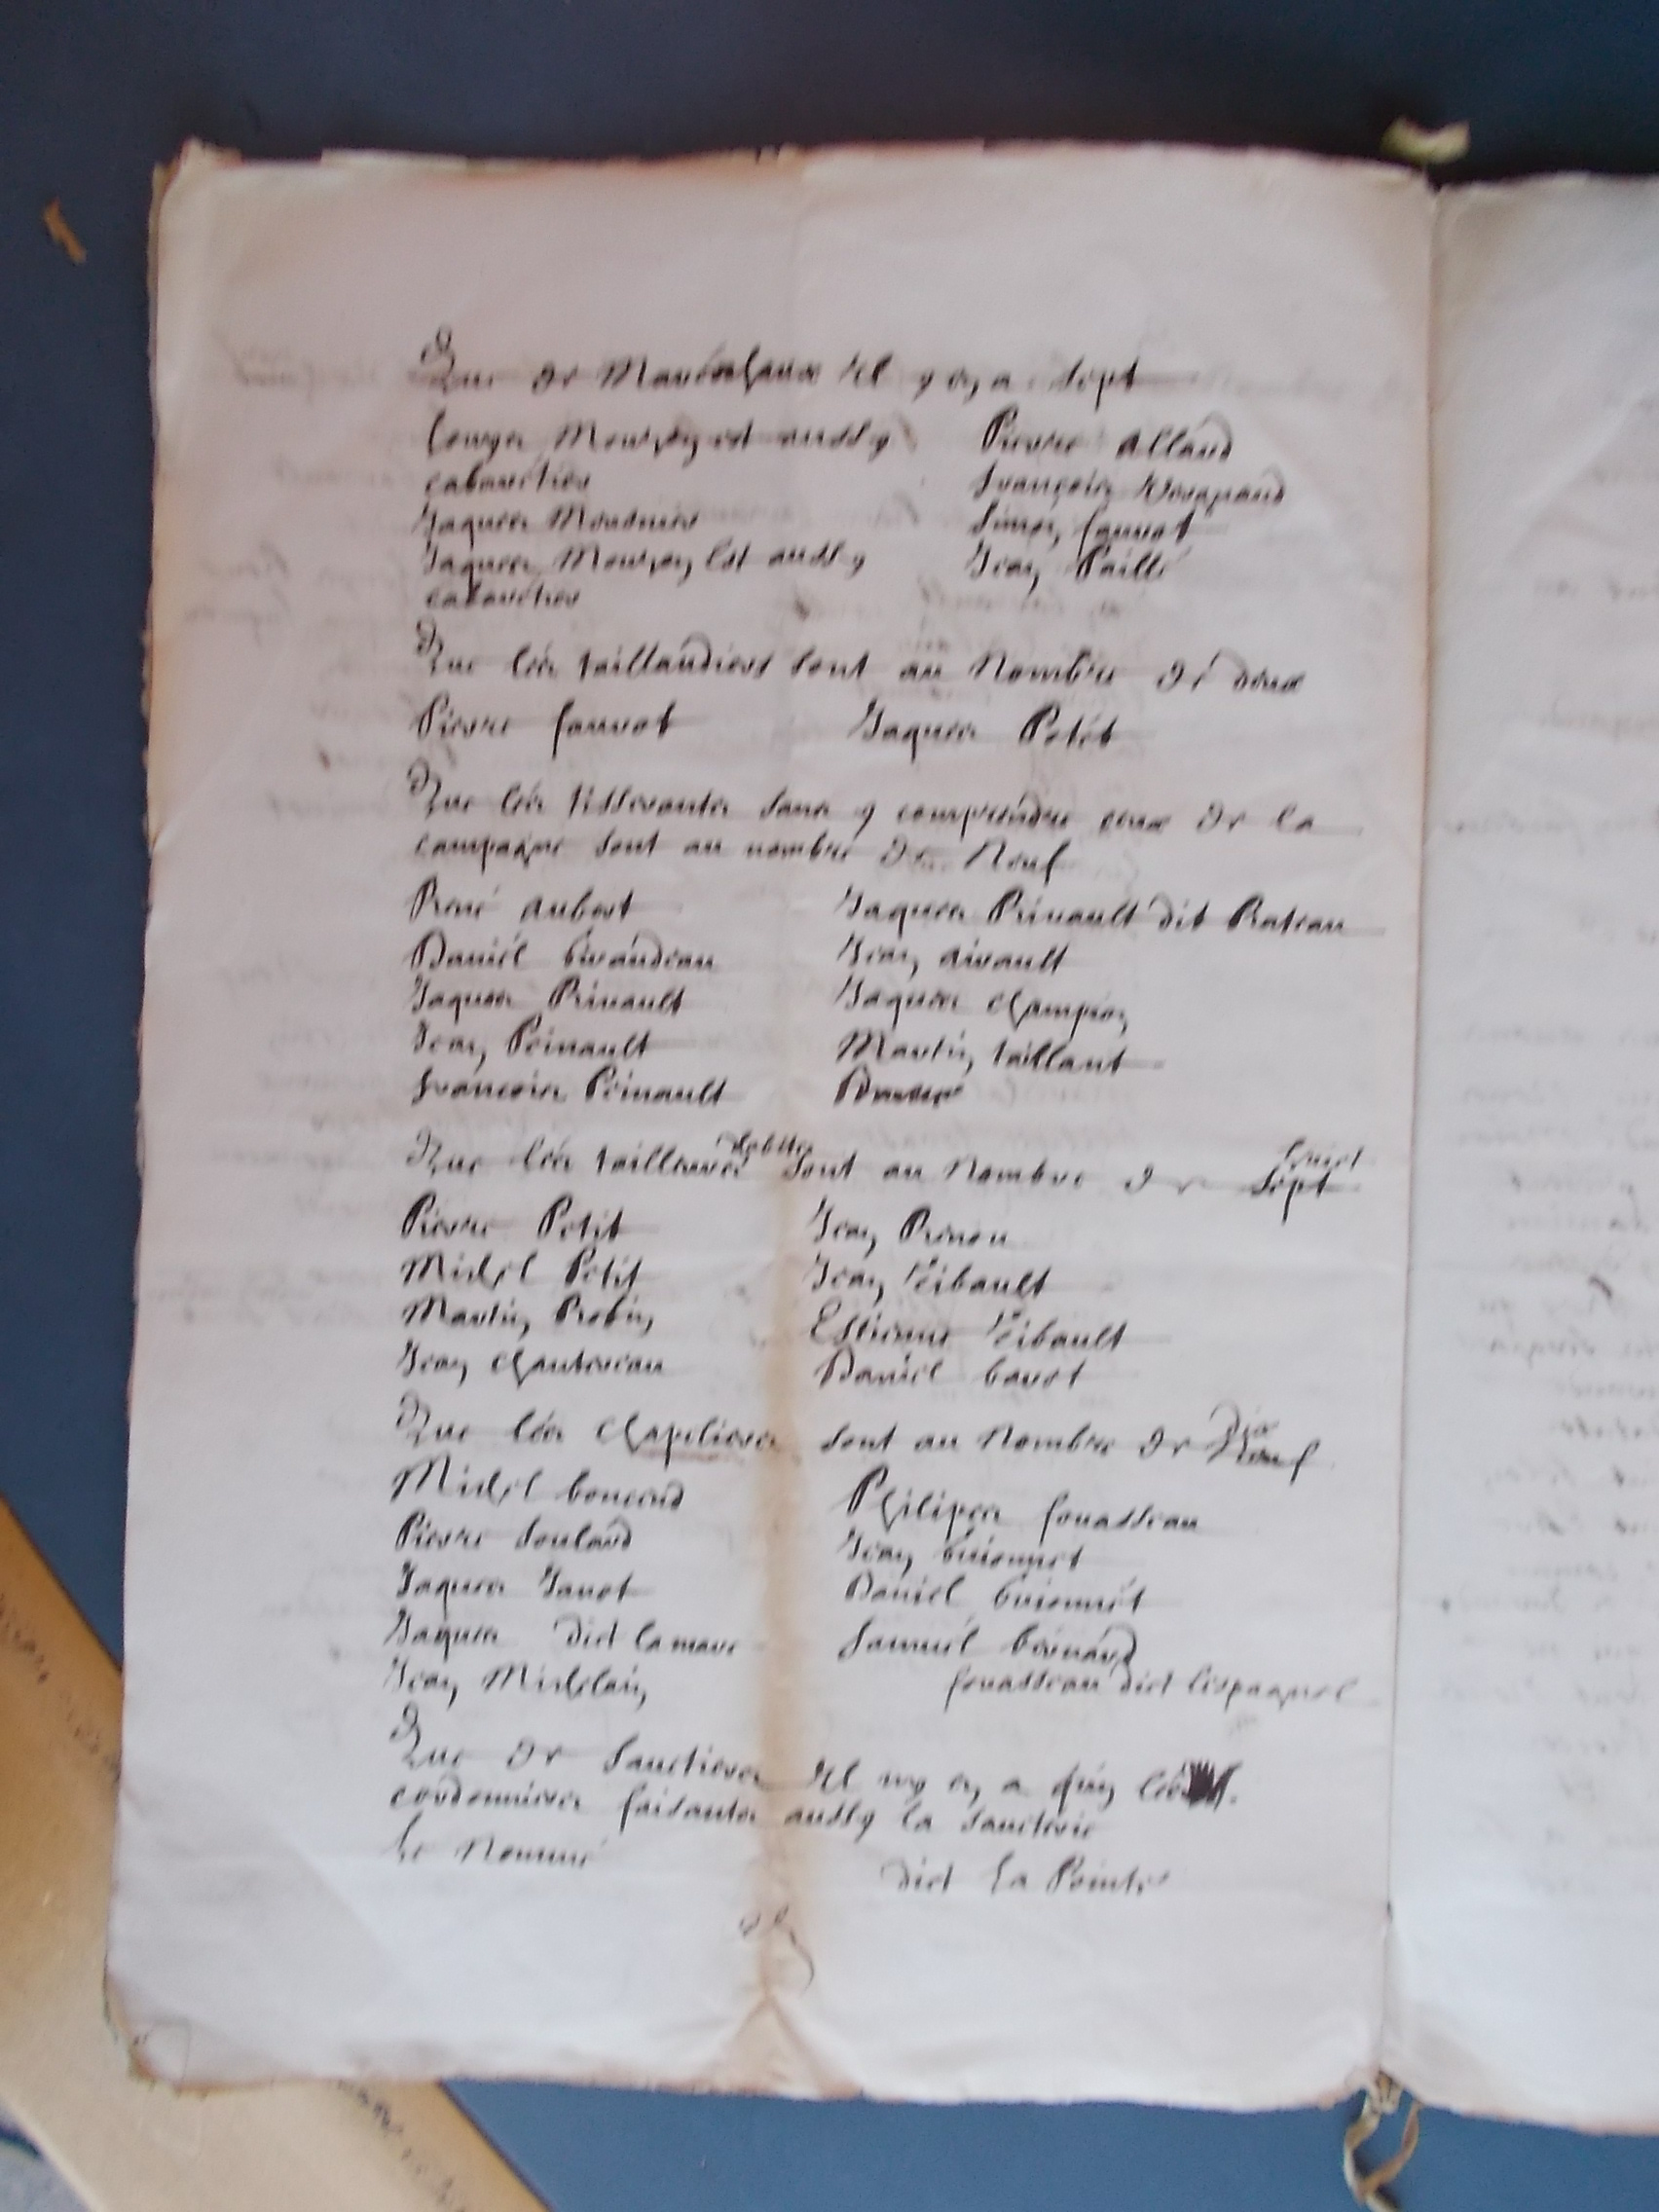 Que de Mareschaux il y en a sept
Louys Mourzon est aussy
cabaretier
Jaques Mousnier
Jaques Mourzon Est aussy
cabaretier
Pierre Allaud
François
Simon fauvot
Jean Paillé
Que les taillandiers sont au Nombre de deux
Pierre fauvot Jaques Petit
Que les tisserants sans y comprendre ceux de la
campagne sont au nombre de Neuf
René Aubert
Daniel Giraudeau
Jaques Prinault
Jean Prinault
François Prinault
Jaques Prinault dit Rateau
Jean Airault
Jaques Champion
Martin taillant
Que les tailleurs d'habits sont au Nombre de sept huict
Pierre Petit
Michel Petit
Martin Robin
Jean Chantereau
Jean Renou
Jean Tibault
Estienne Tibault
Daniel Bavot
Que les Chapeliers sont au Nombre de Neuf Dix
Michel
Pierre Soulard
Jaques Janot
Jaques dict Lamare
Jean Michelain
Philipes fouasseau
Jean Guionnet
Daniel Guionnet
Samuel Bernard
fouasseau dict Lespagnol
Que de Sauetiers Il ny en a quin les
cordonniers faisants aussy la saueterie
Le Nommé dict La Pointe